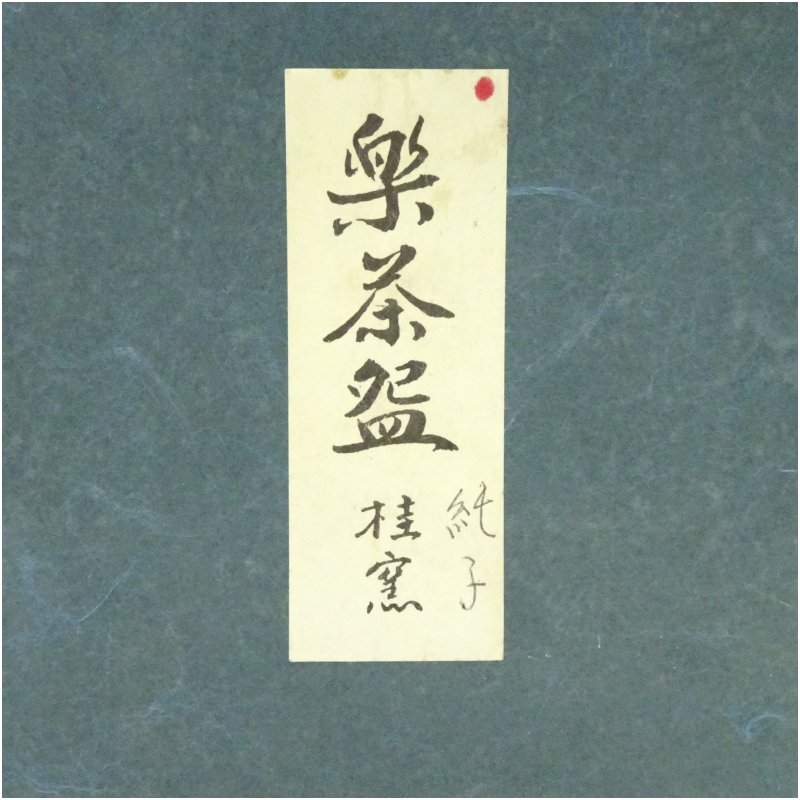 樂茶盌
桂窯
純子